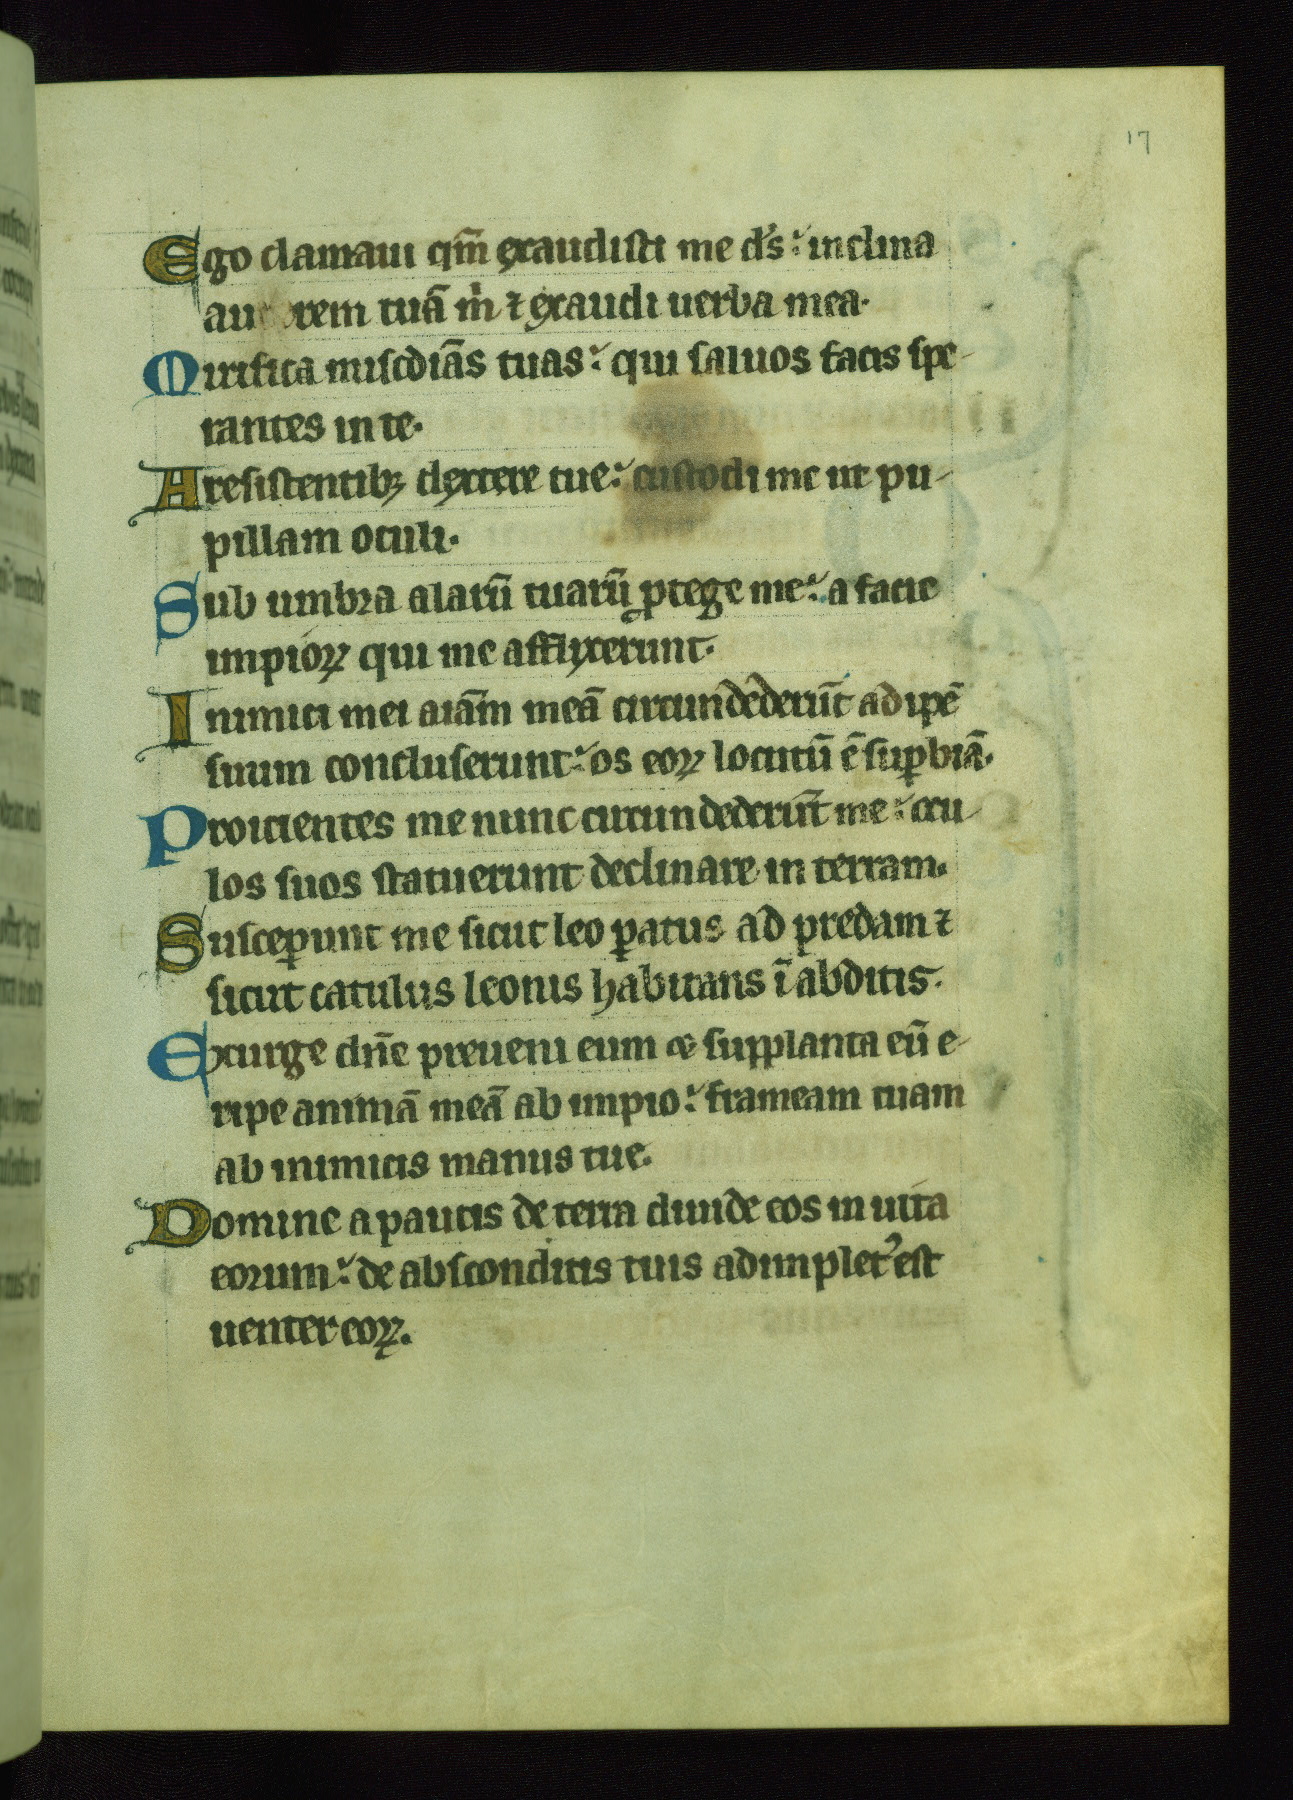 17
Ego clamaui qm̄ exaudisti me ds: inclina
au rem tuā ṁ ⁊ exaudi uerba mea.
Mirifica misc̄diās tuas: qui saluos facis spe-
rantes in te.
A resistentibꝫ dextere tue: custodi me ut pu-
pillam oculi.
Sub umbra alarū tuarū ꝓtege me: a facie
impioꝝ qui me afflixerunt.
Inimici mei aiām meā circundederūt adipē
suum concluserunt: os eoꝝ locutū ē suꝑbiā.
Proicientes me nunc circundederūt me: ocu-
los suos statuerunt declinare in terram.
Susceꝑunt me sicut leo ꝑatus ad predam ⁊
sicut catulus leonis habitans ī abditis.
Exurge dn̄e preueni eum & supplanta eū e-
ripe animā meā ab impio: frameam tuam
ab inimicis manus tue.
Domine a paucis de terra diuide eos in uita
eorum: de absconditis tuis adimplet᾿ est
uenter eoꝝ.